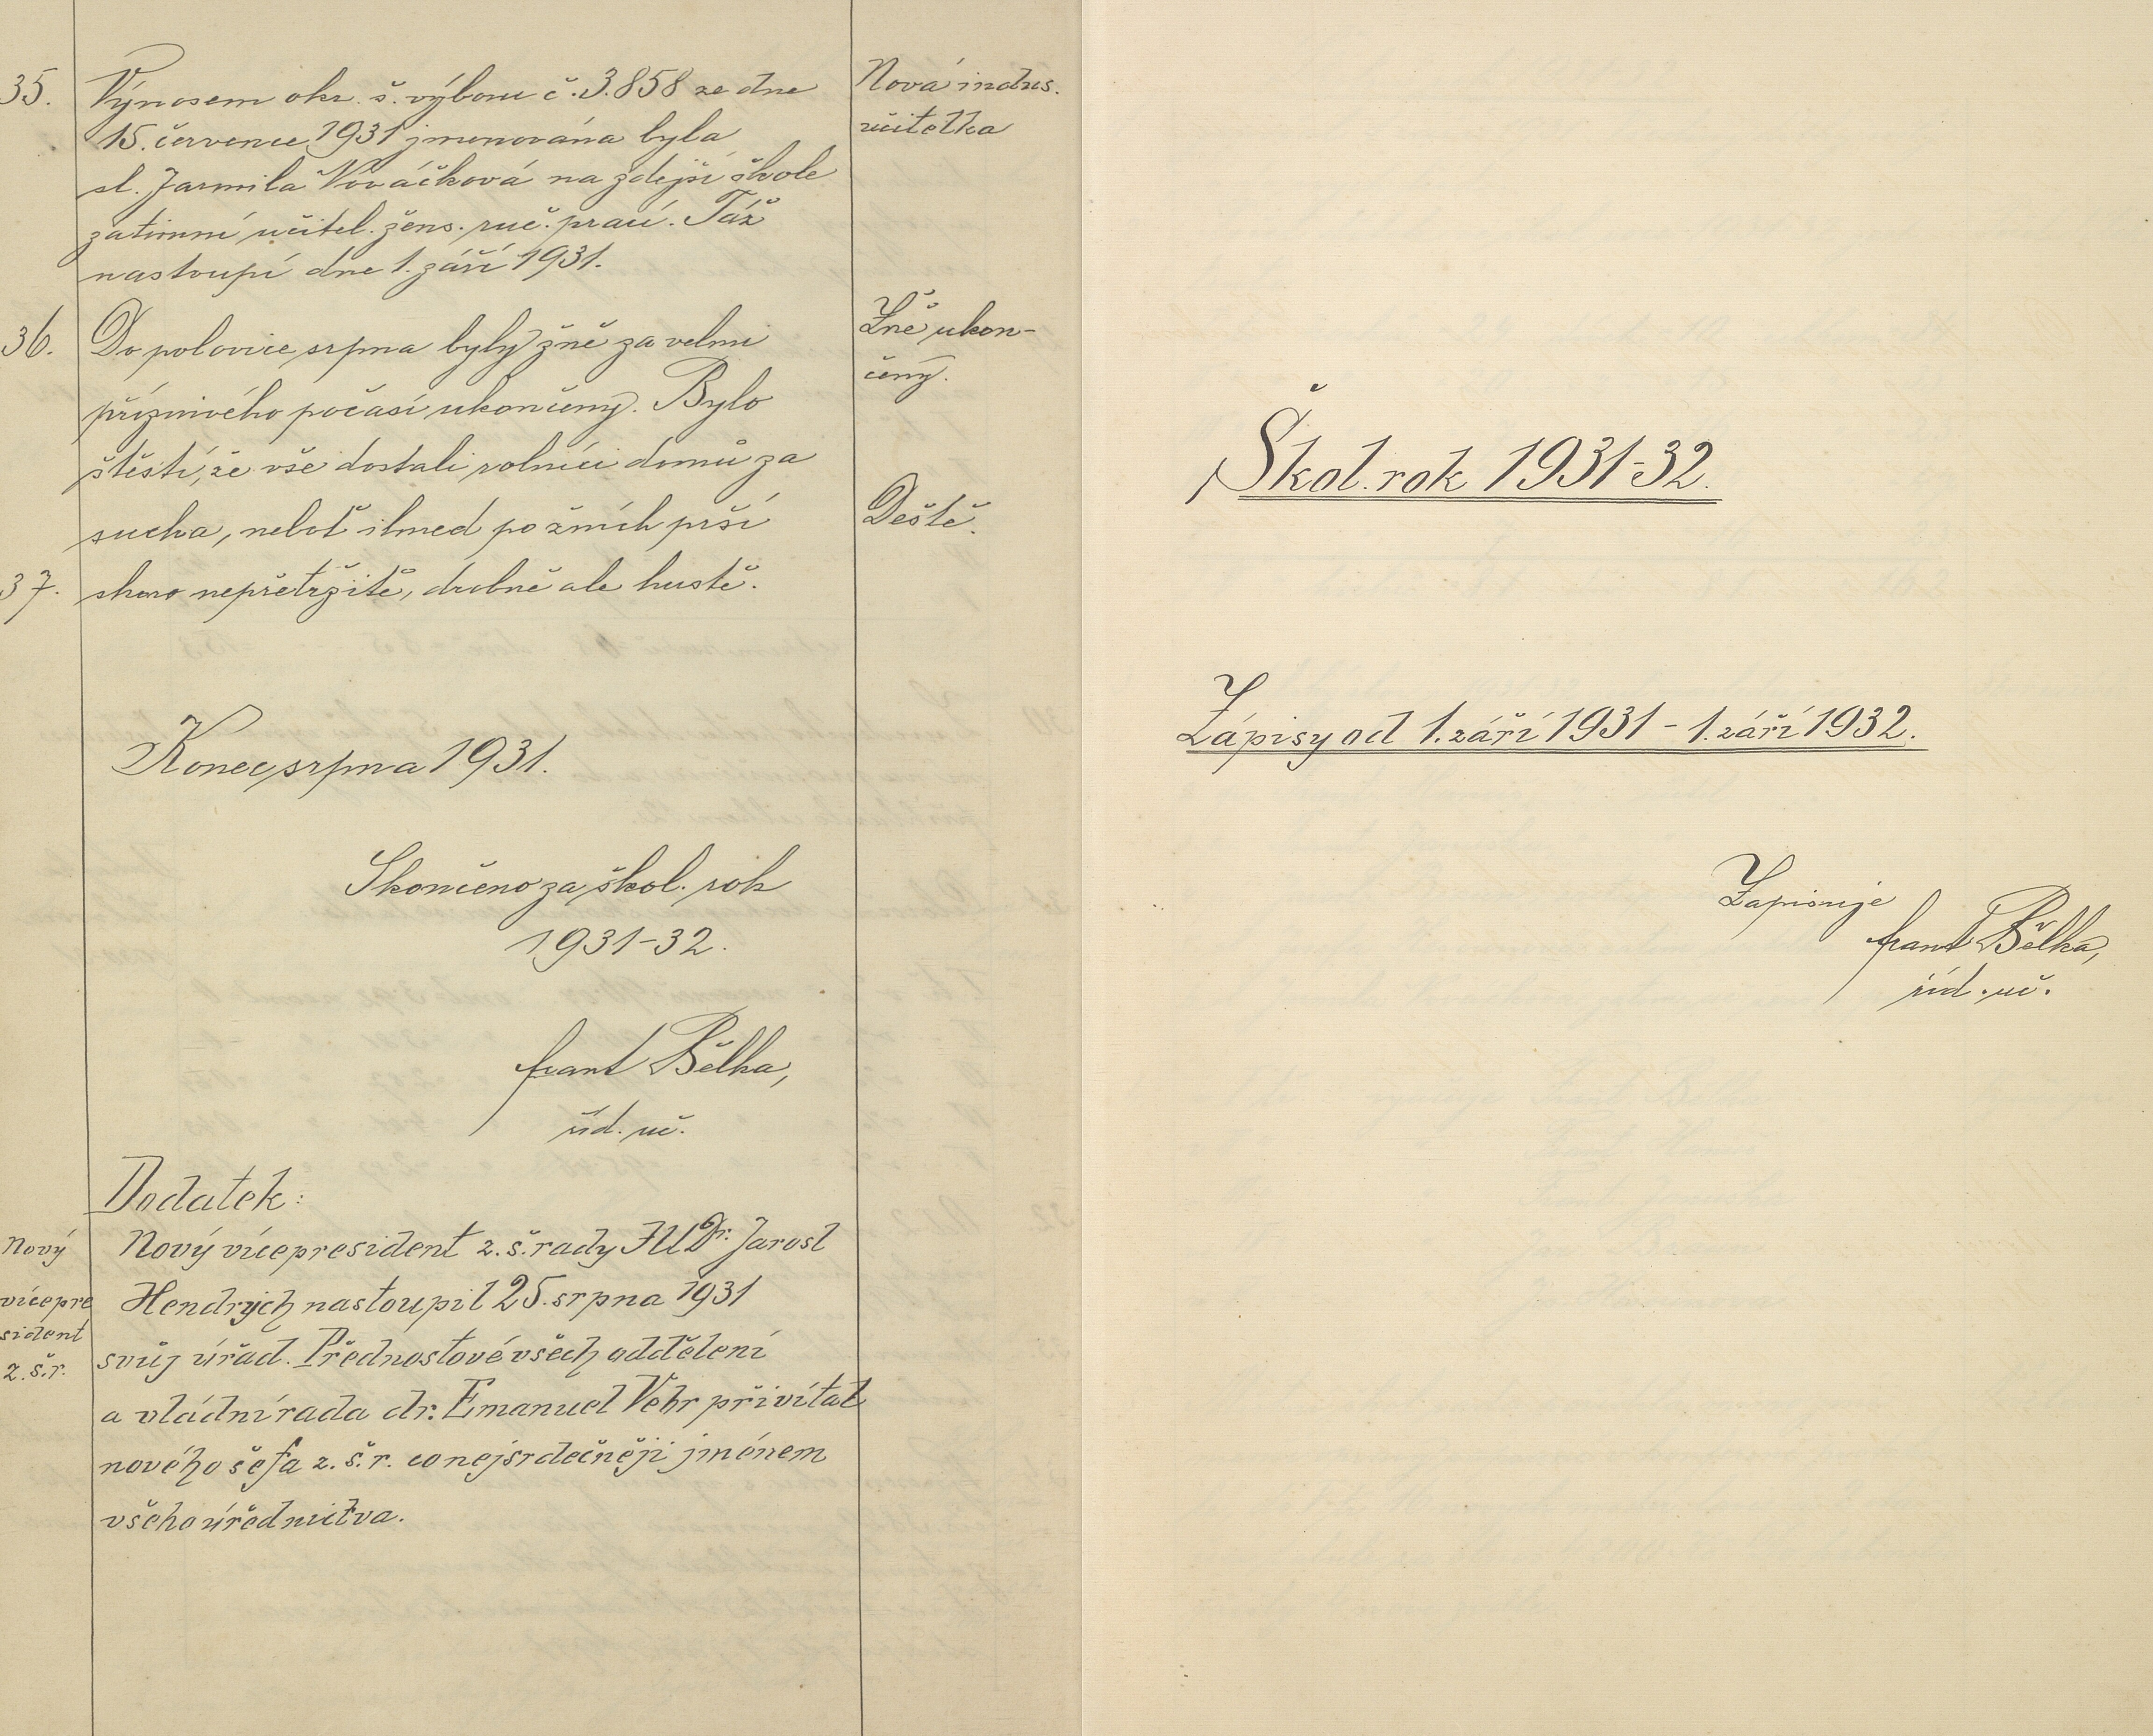 35. Výnosem okr. š. výboru č. 3.858 ze dne
15. července 1931 jmenována byla
sl. Jarmila Nováčková na zdejší škole
zatimní učitel. žens. ruč. prací. Táž
nastoupí dne 1. září 1931.
Nová indus.
učitelka
36. Do polovice srpna byly žně za velmi
příznivého počasí ukončeny. Bylo
štěstí, že vše dostali rolníci domů za
sucha, neboť ihned po žních prší
37. skoro nepřetržitě, drobně ale hustě.
Žně ukon-
čeny.
Deště.
Konec srpna 1931.
Skončeno za škol. rok
1931-32.
Frant Bělka,
říd. uč.
Dodatek:
Nový vícepresident z. š. rady JUDr. Jarosl
Hendrych nastoupil 25. srpna 1931
svůj úřad. Přednostové všech oddělení
a vládní rada dr. Emanuel Vehr přivítal
nového šéfa z. š. r. co nejsrdečněji jménem
všeho úřednictva.
Nový
vícepre
sident
z. š. r.
Škol. rok 1931-32.
Zápisy od 1. září 1931 - 1. září 1932.
Zapisuje
Frant Bělka,
říd. uč.